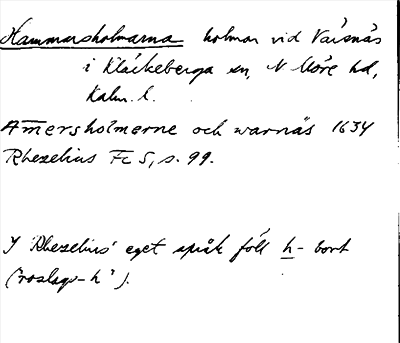 Hammarsholmarna holmar vid Värnäs
i Kläckeberga sn, N Möre hd,
Kalm. l.
Amersholmerne och warnäs 1634
Rhezelius Fc 5, s. 99.
I Rhezelius' eget språk föll h- bort
("roslags-h").